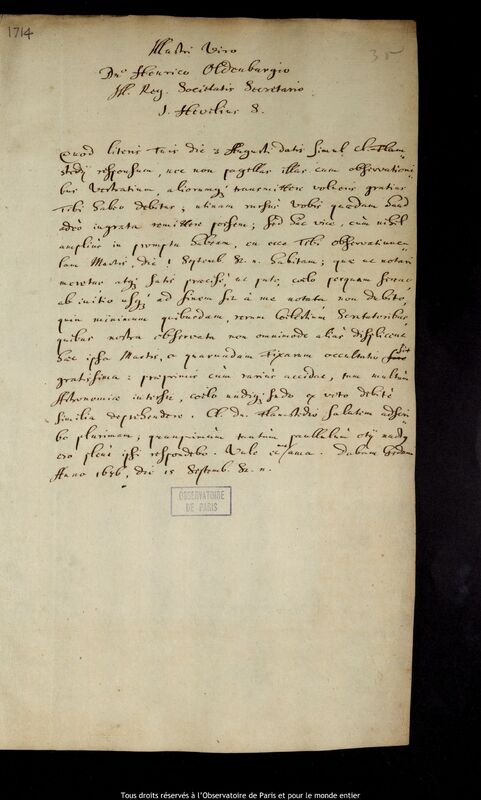 1714
35
Illustri Viro
Dno Henrico Oldenburgio
Ill. Reg. Societatis Secretario
J. Hevelius S.
Quod literis Tuis die 3 Augusti datis simul Cl. Flam-
stedij responsum, nec non pagellas illas cum observationi-
bus Vestratium, aliorumq; transmittere volueris gratias
Tibi habeo debitas; utinam rursus Vobis quædam haud
adeò ingrata remittere possem; sed hac vice, cùm nihil
amplius in promptu habeam, en ecce Tibi observatiuncu-
lam Martis, die 1 Septemb. st. n. habitam; quæ ut notari
meretur atq; satis præcisè, ut puto, cœlo perquam sereno
ab initio usq; ad finem sit à me notata non dubito,
quin minimum quibusdam, rerum Cœlestium Scrutatoribus
quibus nostra observata non omninò aliàs displicent
hæc ipsa Martis, et quarundam Fixarum occultatio sit
gratissima: præprimis cùm rarius accidat, tum multùm
Astronomiæ intersit, cœlo undiq; sudo ex voto debitè
similia deprehendere. Cl. Dn. Flamstedio salutem adscri-
bo plurimam, quamprimùm tantùm paullulùm otij nactus
ero pleni ipsi respondebo. Vale et ama. Dabam Gedani
Anno 1676, die 15 Septemb. st. n.
OBSERVATOIRE
DE PARIS
Tous droits réservés à l'Observatoire de Paris et pour le monde entier